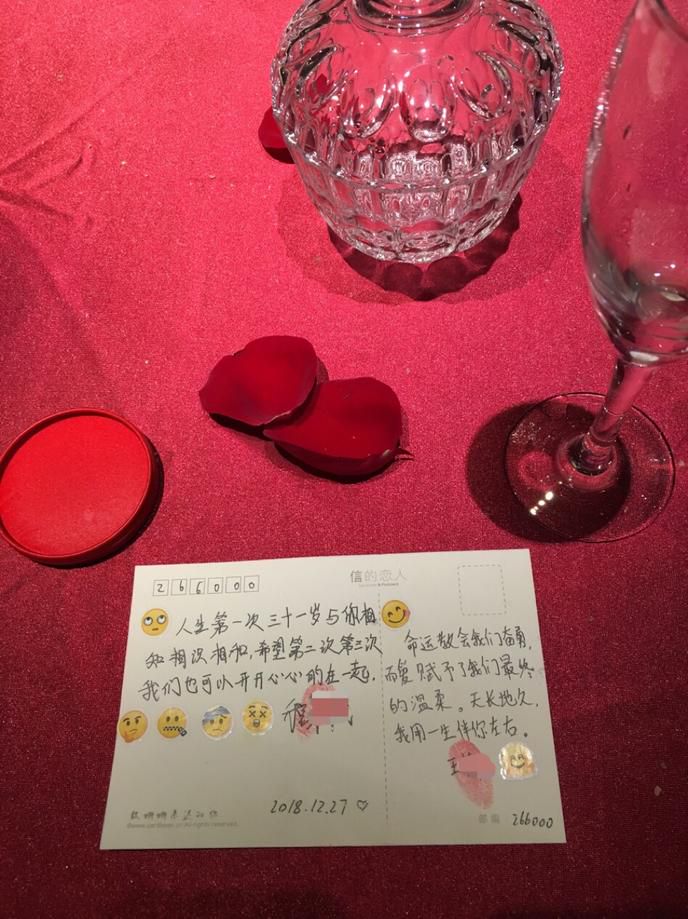 266000
信的恋人
人生第一次三十一岁与你相
知相识相和,希望第二次第三次
我们也可以开开心心的在一起.
2018.12.27
命运教会我们奋勇,
而复赋予了我们最终
的温柔。天长地久,
我用一生伴你左右。
王
邮编 266000